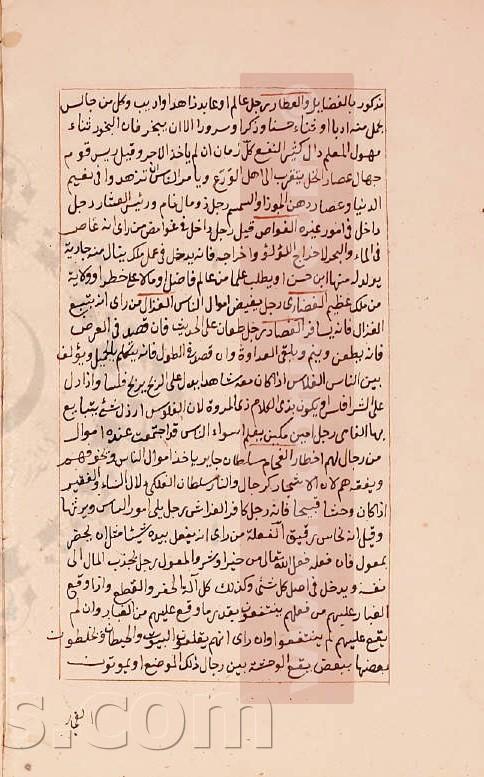 مذكور بالفضايل والعطار رجل عالم او عابد زاهد او اديب وكل من جالس
منه ادبا او ثناء حسنا وذكرا وسرورا الا ان يتبخر فان البخور ثناء
مهول المعلم دال كثير النفع كل زمان ان لم ياخذ الاجر وقيل ريس قومه
جهال عصار الخل يتقرب الى اهل الورع ويامر الناس ان تزهدوا في نعيم
الدنيا وعصار دهن الموز والسمسم رجل ذو مال نام ورئيس العشار رجل
داخل في امور غيره الغواص قيل رجل داخل في غوامض من راى انه غاص
في الماء والبحر لاخراج اللؤلؤ واخرجه فانه يدخل في عمل ملك ينال منه جارية
يولد له منها ابن حسن او يطلب علما من عالم فاضل او مالا على خطر او ولاية
من ملك عظيم الغضاري رجل يقبض اموال الناس الغزال من راى انه يتبع
الغزال فانه يسافر القصار رجل طعان على الحديث فان قصد في العرض
فانه يطعن وينم ويلقى العداوة وان قصد في الطول فانه يتكلم بالجميل ويؤلف
بين الناس الفلاس اذا كان معه شاهد يدل على الربح يربح فلسا واذا دل
على الشر افلس او يكون بذي الكلام ذي المروة لان الفلوس ارذل شئ يتبايع
بها الفامي رجل امين مكين يعلم اسواء الناس قد اجتمعت عنده اموال
من رجال لهم اخطار الفحام سلطان جاير ياخذ اموال الناس ويخوفهم
ويفقرهم لان الاشجار كرجال والنار سلطان الفلكي دلال النساء والفقير
اذا كان وحشا قبيحا فانه رجل كافر الفراش رجل يلي امور الناس ويرتبها
وقيل انه نخاس رقيق الفعلة من راى انه يفعل بيده شيئا مثل ان يحفر
بمعول فان فعله فعل الله تعالى من خير او شر والمعول رجل يجذب المال الى
نفسه ويدخل في اصل كل شئ وكذلك كل آلة الحفر والقطع واذا وقع
الغبار عليهم من فعلهم ينتفعوا بقدر ما وقع عليهم من الغبار وان لم
يقع عليهم لم ينتفعوا وان راى انهم يقلعون البيوت والحيطان ويخلطون
بعضها ببعض يقع الوحشة بين رجال ذلك الموضع او يموتون
s.com